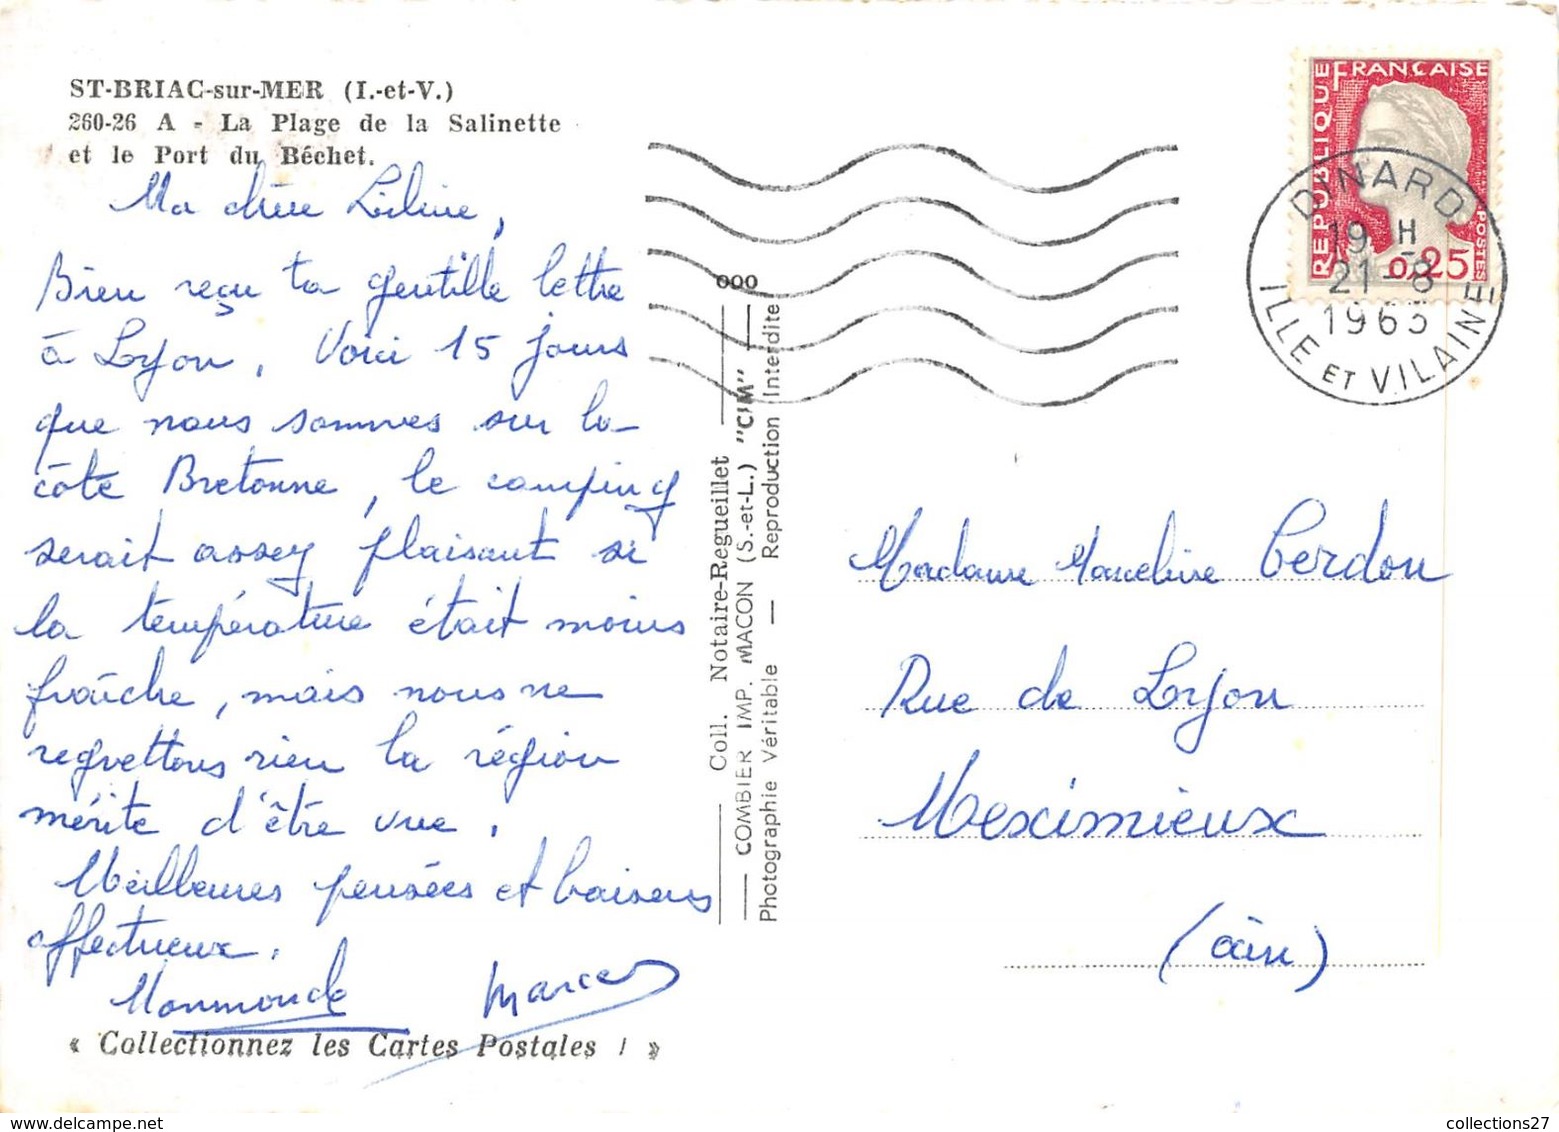 ST-BRIAC-sur-MER (I.-et-V.)
260-26 A - La Plage de la Salinette
et le Port du Béchet.
Ma chère
Bien reçu ta gentille lettre
à Lyon. Voici 15 jours
que nous sommes sur la
côte Bretonne, le camping
serait assez plaisant si
la température était moins
fraîche, mais nous ne
regrettons rien la région
mérite d'être vue.
Meilleures pensées et baisers
affectueux.
Marcel
« Collectionnez les Cartes Postales ! »
Coll. Notaire-Regueillet
COMBIER IMP. MACON (S.-et-L.) "CIM"
Photographie Véritable — Reproduction Interdite
000
RÉPUBLIQUE FRANÇAISE
POSTES
0,25
DINARD
19 H
21-8
1963
ILLE ET VILAINE
Madame Marceline Cerdon
Rue de Lyon
Meximieux
(Ain)
collections27